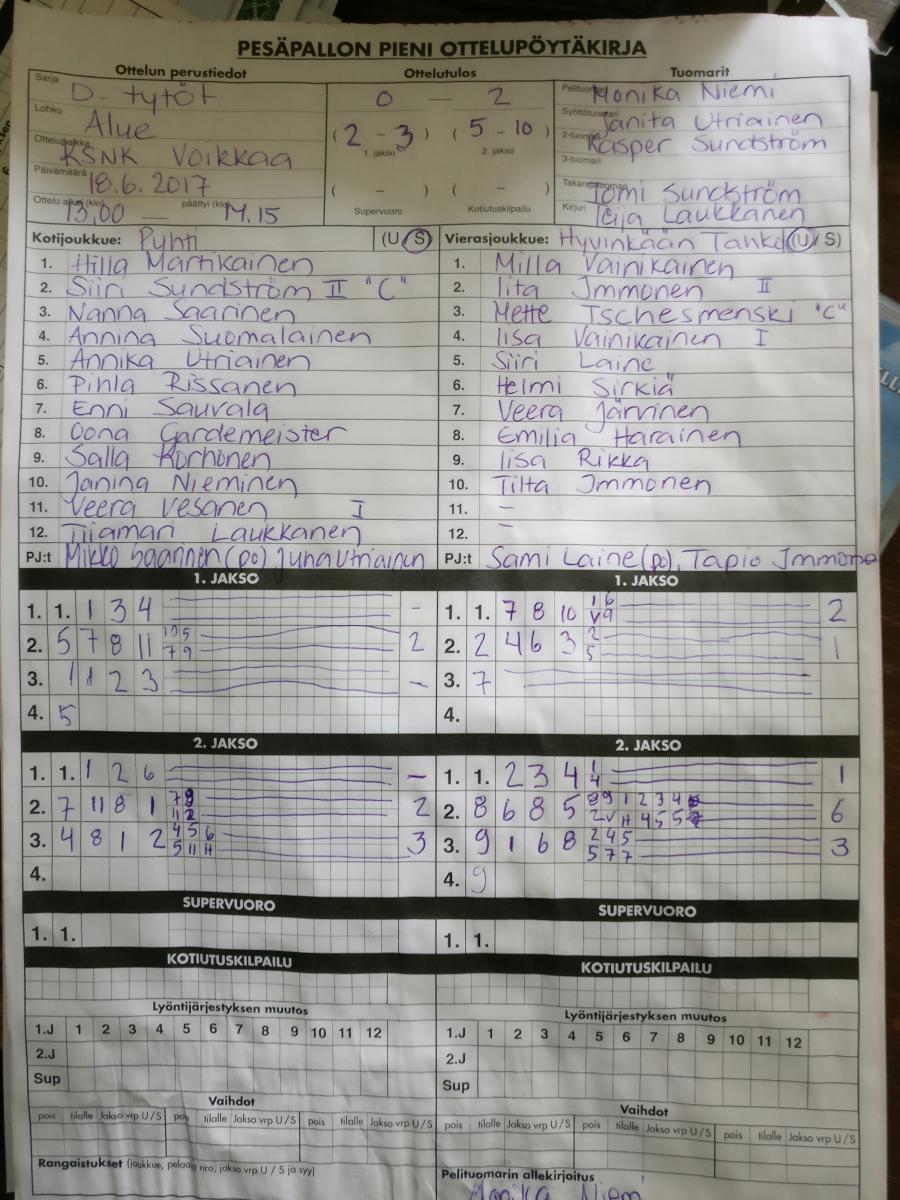 PESÄPALLON PIENI OTTELUPÖYTÄKIRJA
Ottelun perustiedot Ottelutulos Tuomarit
Sarja D-tytöt
Lohko Alue
Ottelupaikka KSNK Voikkaa
Päivämäärä 18.6.2017
Ottelu alkoi (klo) 13.00 — päättyi (klo) 14.15
0 — 2
(2 - 3) (5 - 10)
1. jakso 2. jakso
( - ) ( - )
Supervuoro Kotiutuskilpailu
Pelituomari Monika Niemi
Syöttötuomari Janita Utriainen
2-tuomari Kasper Sundström
3-tuomari
Takarajatuomari Tomi Sundström
Kirjuri Teija Laukkanen
Kotijoukkue: Puhti (U/S) Vierasjoukkue: Hyvinkään Tahko (U/S)
1. Hilla Martikainen 1. Milla Vainikainen
2. Siiri Sundström II "C" 2. Iita Immonen II
3. Nanna Saarinen 3. Mette Tschesmenski "C"
4. Annina Suomalainen 4. Iisa Vainikainen I
5. Annika Utriainen 5. Siiri Laine
6. Pihla Rissanen 6. Helmi Sirkiä
7. Enni Sauvala 7. Veera Järvinen
8. Oona Gardemeister 8. Emilia Harainen
9. Salla Korhonen 9. Iisa Rikka
10. Janina Nieminen 10. Tilta Immonen
11. Veera Vesanen I 11. –
12. Tiiamari Laukkanen 12. –
PJ:t Mikko Saarinen (po) Juha Utriainen PJ:t Sami Laine (po), Tapio Immone
1. JAKSO 1. JAKSO
1. 1. 1 3 4 - 1. 1. 7 8 10 1 6 2
V 9
2. 5 7 8 11 10 5 2 2. 2 4 6 3 2 1
7 9 5
3. 11 2 3 - 3. 7
4. 5 4.
2. JAKSO 2. JAKSO
1. 1. 1 2 6 - 1. 1. 2 3 4 1 1
4
2. 7 11 8 1 7 9 2 2. 8 6 8 5 8 9 1 2 3 4 6
11 2 2 V H 4 5 5
3. 4 8 1 2 4 5 6 3 3. 9 1 6 8 2 4 5 3
5 11 H 5 7 7
4. 4. 9
SUPERVUORO SUPERVUORO
1. 1. 1. 1.
KOTIUTUSKILPAILU KOTIUTUSKILPAILU
Lyöntijärjestyksen muutos Lyöntijärjestyksen muutos
1.J 1 2 3 4 5 6 7 8 9 10 11 12 1.J 1 2 3 4 5 6 7 8 9 10 11 12
2.J 2.J
Sup Sup
Vaihdot Vaihdot
pois tilalle Jakso vrp U/S pois tilalle Jakso vrp U/S pois tilalle Jakso vrp U/S pois tilalle Jakso vrp U/S pois tilalle Jakso vrp U/S pois tilalle Jakso vrp U/S
Rangaistukset (joukkue, pelaajan nro, jakso vrp U / S ja syy) Pelituomarin allekirjoitus
Monika Niemi